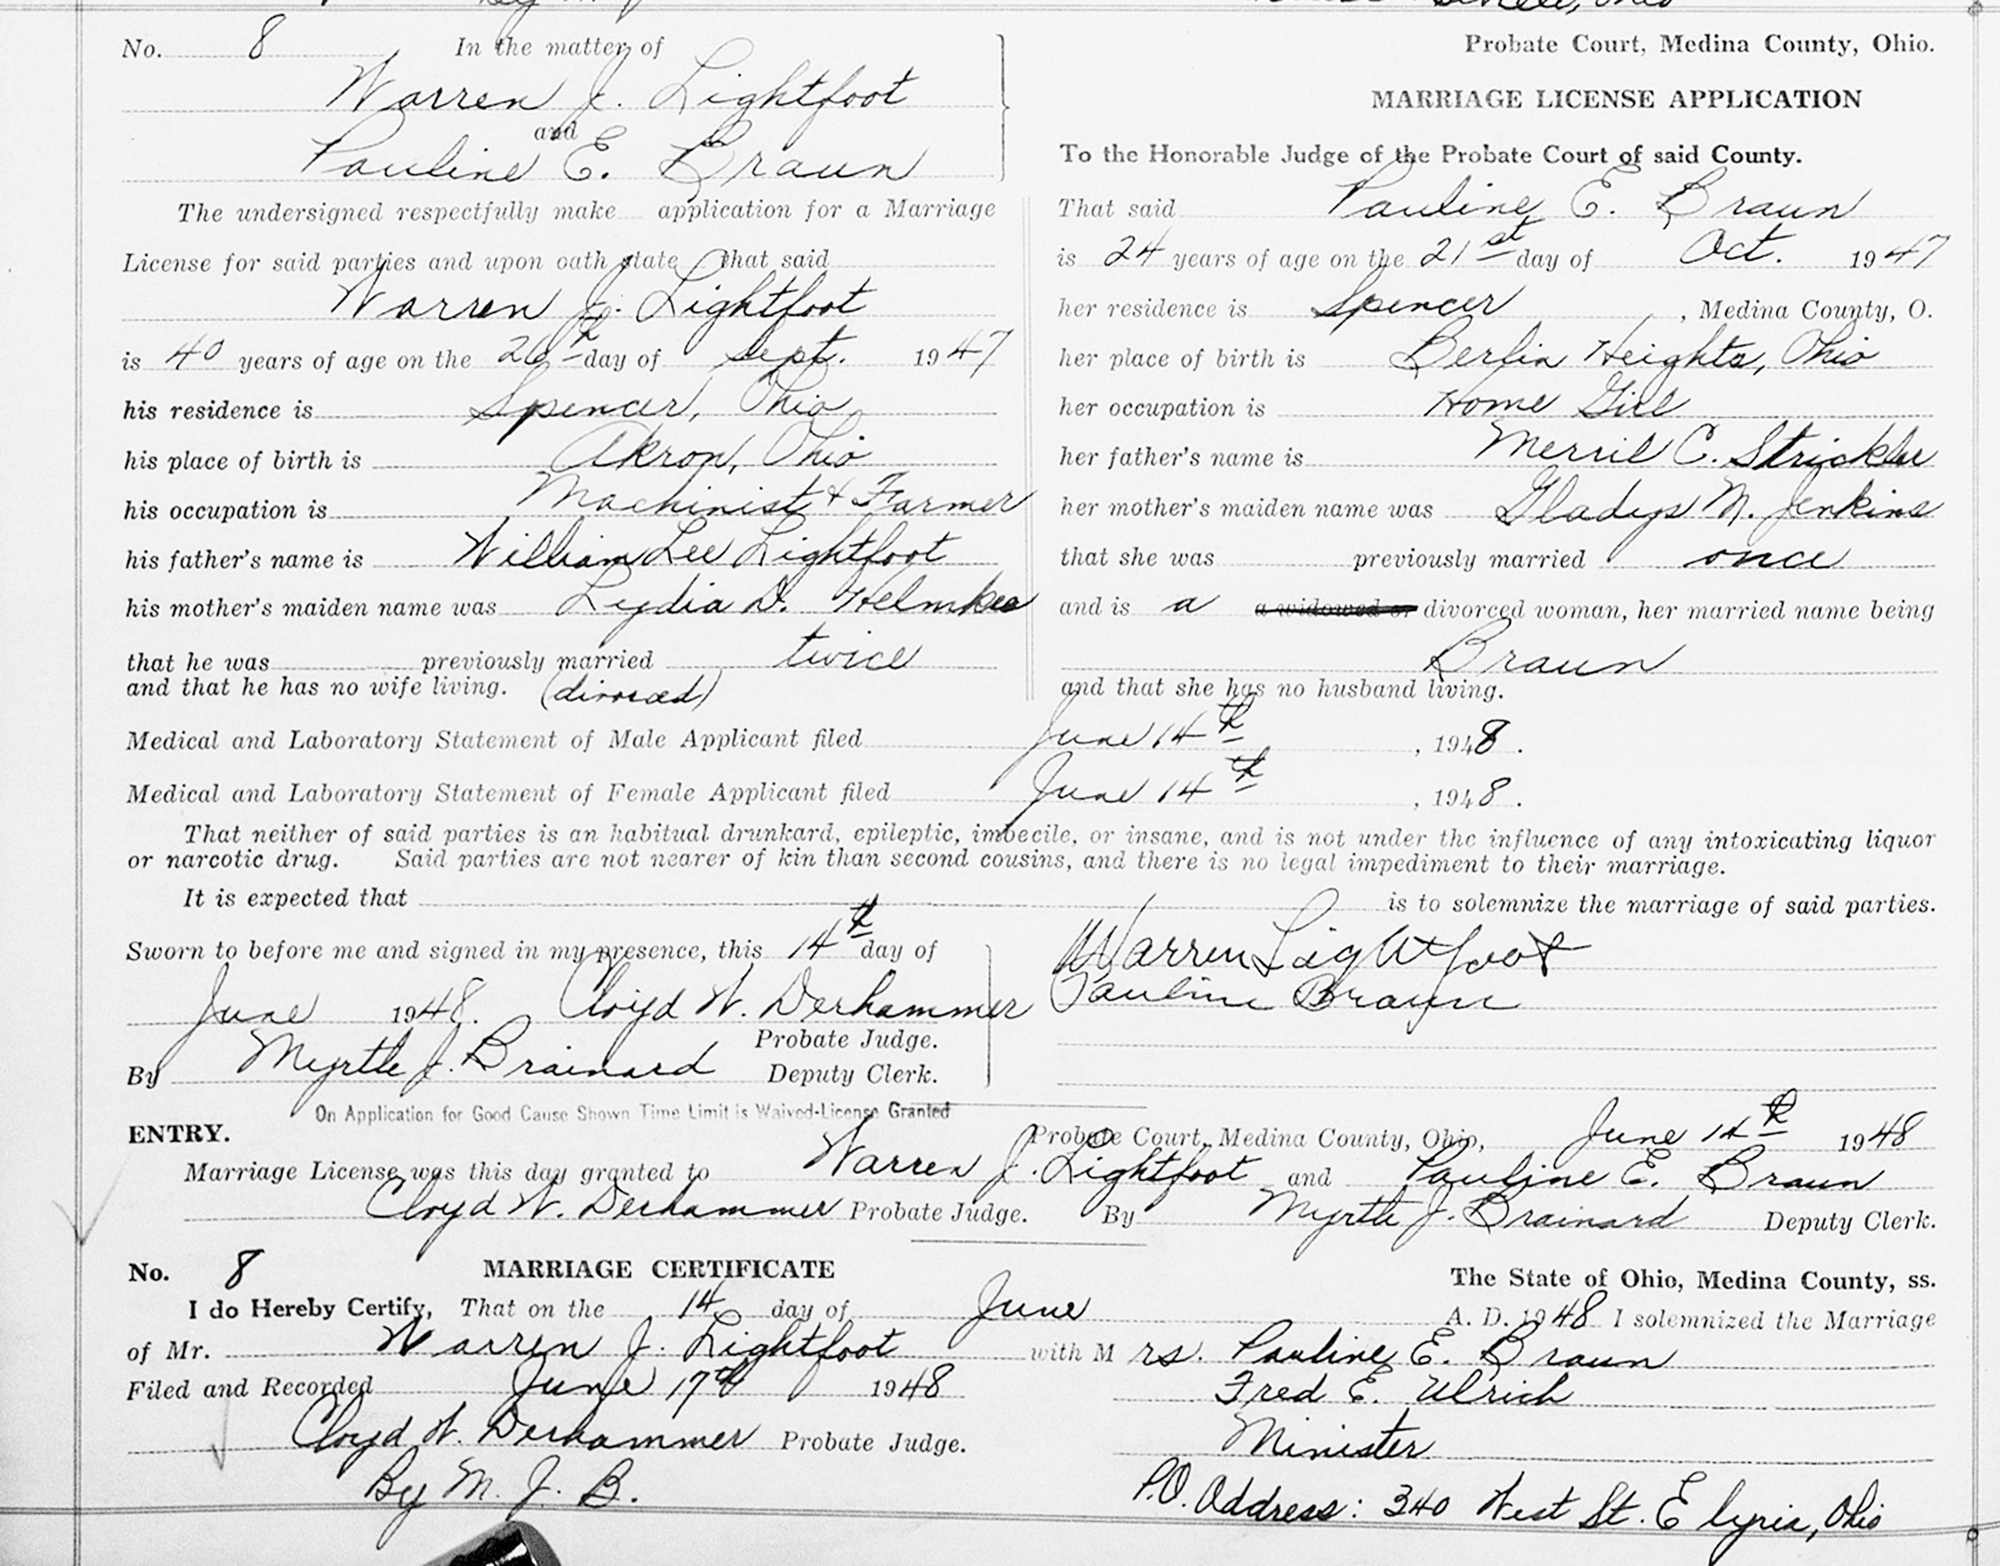 No. 8 In the matter of
Warren J. Lightfoot
and
Pauline E. Braun
The undersigned respectfully make application for a Marriage
License for said parties and upon oath state That said
Warren J. Lightfoot
is 40 years of age on the 26th day of Sept. 1947
his residence is Spencer, Ohio
his place of birth is Akron, Ohio
his occupation is Machinist & Farmer
his father's name is William Lee Lightfoot
his mother's maiden name was Lydia D. Helmkee
that he was previously married twice
and that he has no wife living. (divorced)
Probate Court, Medina County, Ohio.
MARRIAGE LICENSE APPLICATION
To the Honorable Judge of the Probate Court of said County.
That said Pauline E. Braun
is 24 years of age on the 21st day of Oct. 1947
her residence is Spencer, Medina County, O.
her place of birth is Berlin Heights, Ohio
her occupation is Home Girl
her father's name is Merril C. Strickler
her mother's maiden name was Gladys M. Jenkins
that she was previously married once
and is a a widowed or divorced woman, her married name being
Braun
and that she has no husband living.
Medical and Laboratory Statement of Male Applicant filed June 14th, 1948.
Medical and Laboratory Statement of Female Applicant filed June 14th, 1948.
That neither of said parties is an habitual drunkard, epileptic, imbecile, or insane, and is not under the influence of any intoxicating liquor
or narcotic drug. Said parties are not nearer of kin than second cousins, and there is no legal impediment to their marriage.
It is expected that is to solemnize the marriage of said parties.
Sworn to before me and signed in my presence, this 14th day of
June 1948. Cloyd W. Derhammer
Probate Judge.
By Myrtle J. Brainard Deputy Clerk.
Warren Lightfoot
Pauline Braun
On Application for Good Cause Shown Time Limit is Waived-License Granted
ENTRY. Probate Court, Medina County, Ohio, June 14th 1948
Marriage License was this day granted to Warren J. Lightfoot and Pauline E. Braun
Cloyd W. Derhammer Probate Judge. By Myrtle J. Brainard Deputy Clerk.
No. 8 MARRIAGE CERTIFICATE The State of Ohio, Medina County, ss.
I do Hereby Certify, That on the 14 day of June A. D. 1948 I solemnized the Marriage
of Mr. Warren J. Lightfoot with Mrs. Pauline E. Braun
Filed and Recorded June 17th 1948 Fred E. Ulrich
Cloyd W. Derhammer Probate Judge. Minister
By M. J. B. P.O. Address: 340 West St. Elyria, Ohio